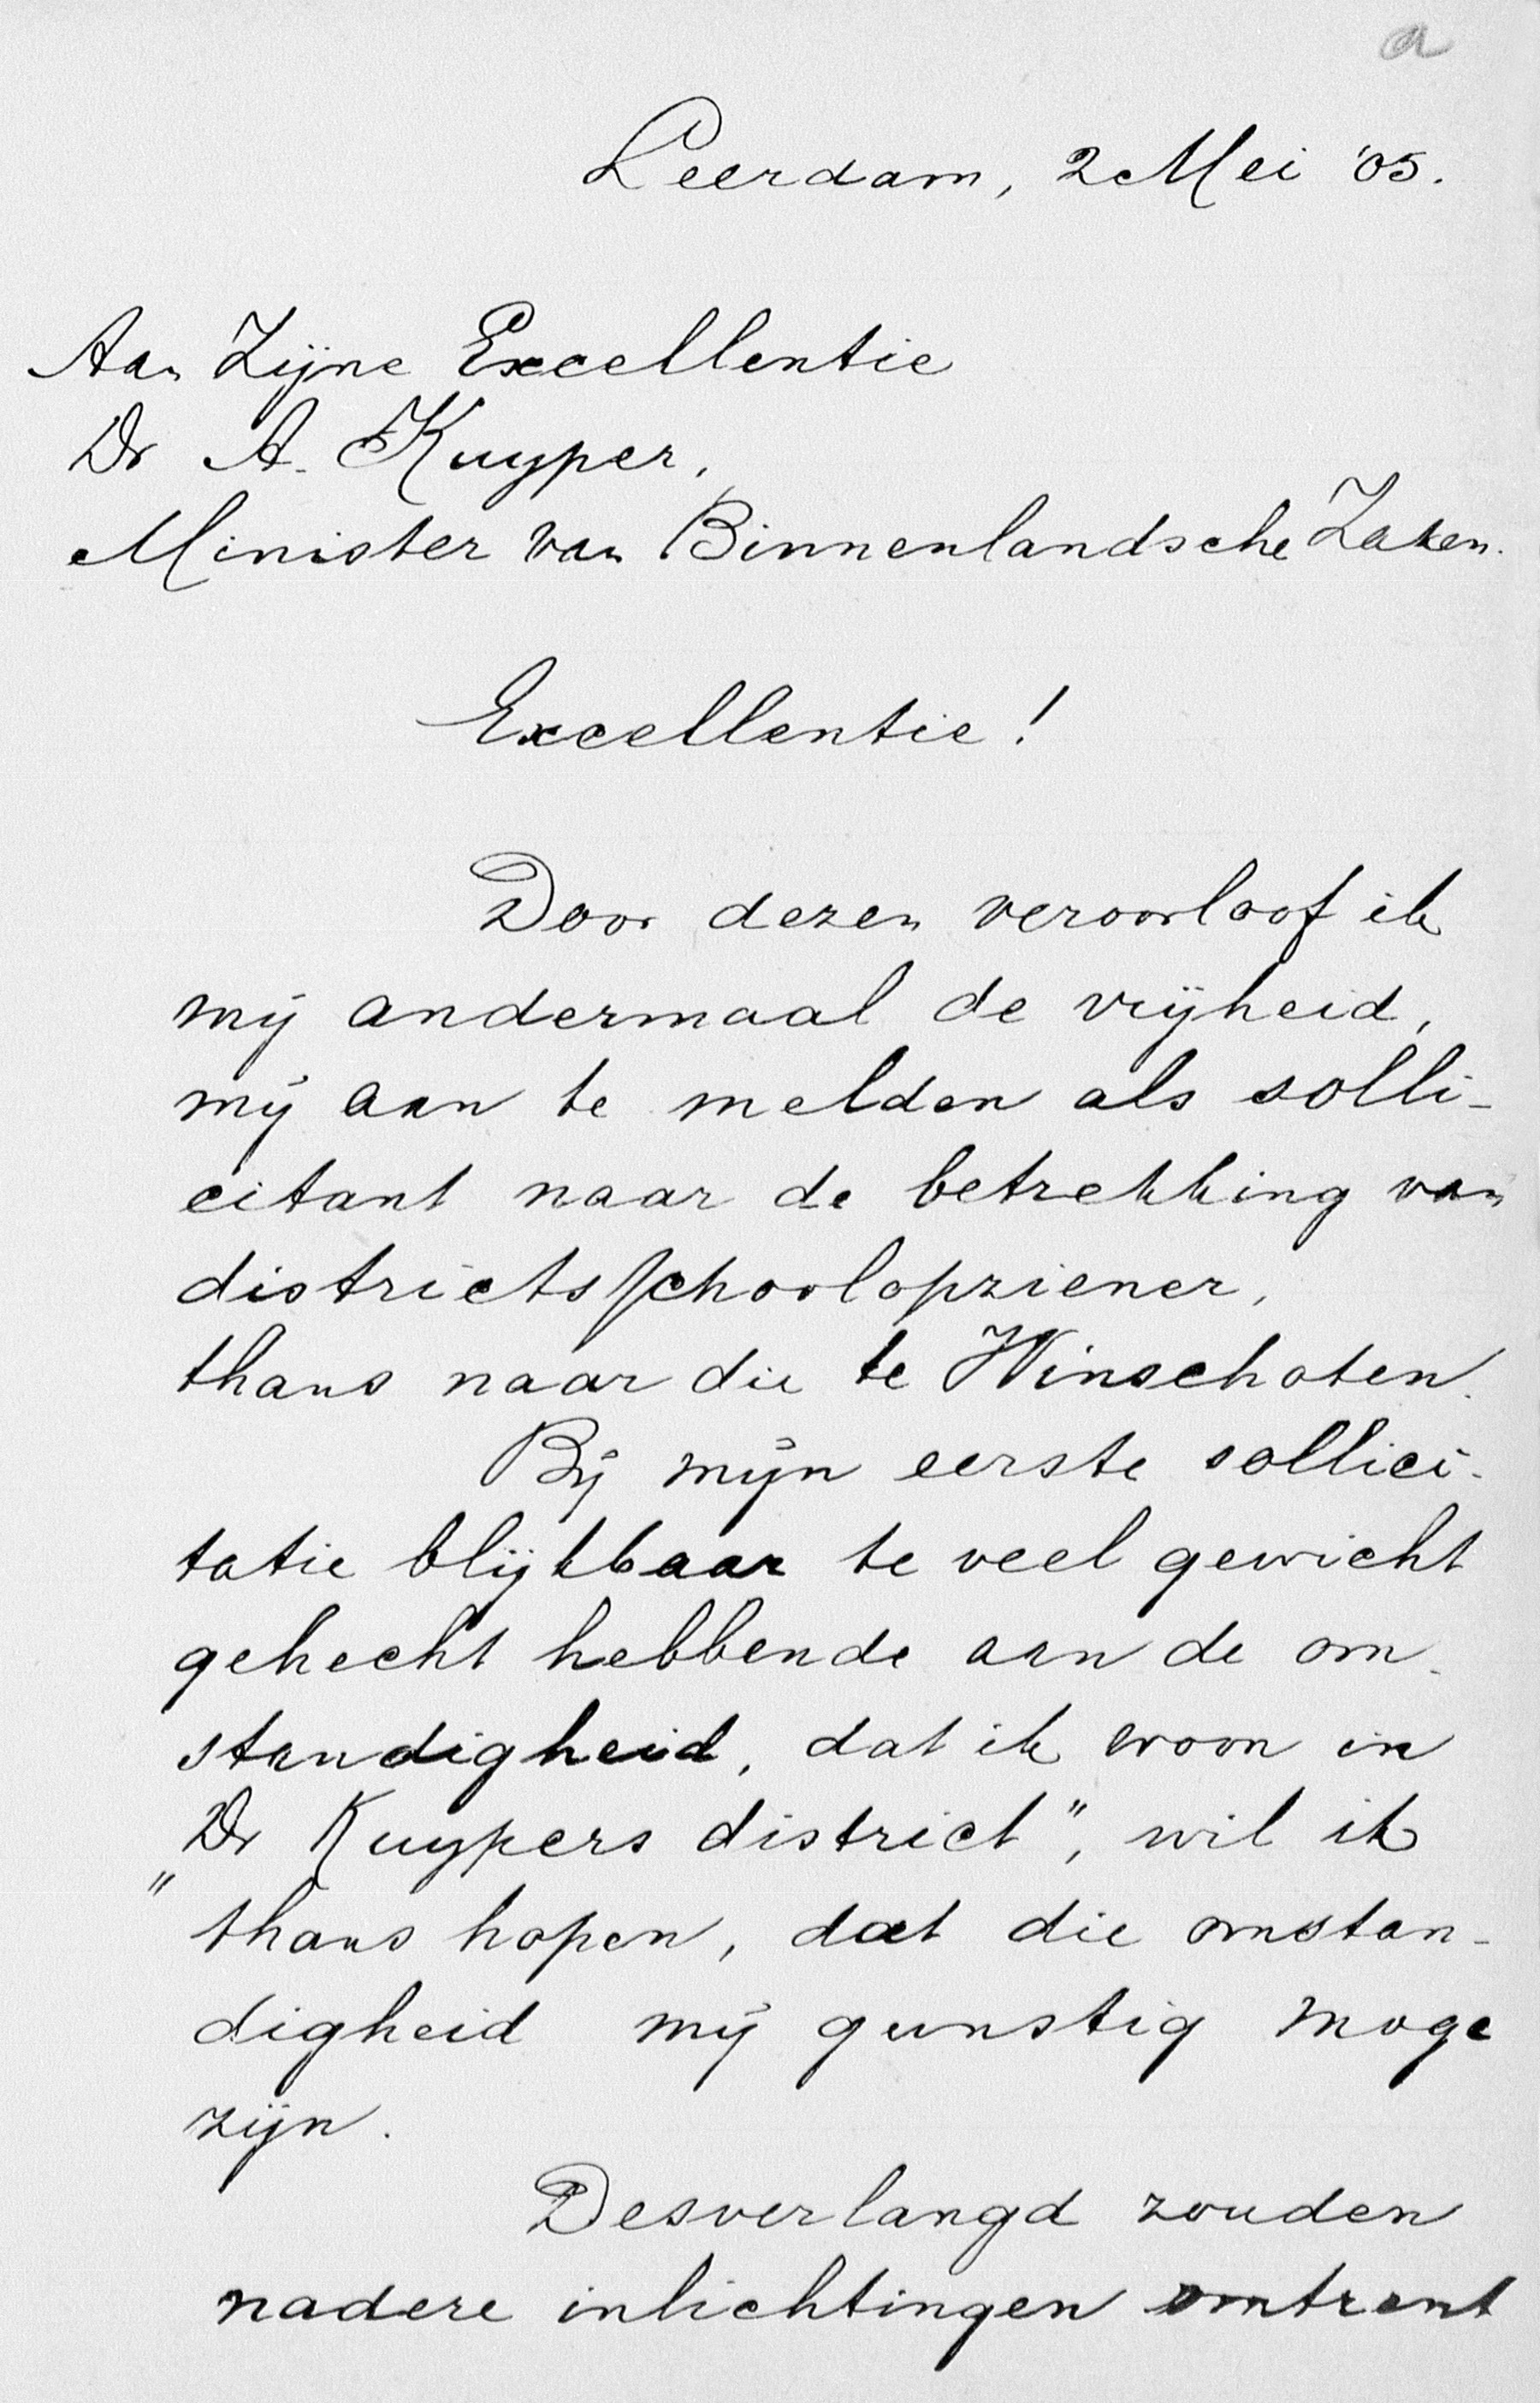 a
Leerdam, 2 Mei '05.
Aan Zijne Excellentie
Dr A. Kuyper,
Minister van Binnenlandsche Zaken.
Excellentie!
Door dezen veroorloof ik
mij andermaal de vrijheid,
mij aan te melden als solli-
citant naar de betrekking van
districtsschoolopziener,
thans naar die te Winschoten.
Bij mijn eerste sollici-
tatie blijkbaar te veel gewicht
gehecht hebbende aan de om-
standigheid, dat ik woon in
„Dr Kuypers district”, wil ik
thans hopen, dat die omstan-
digheid mij gunstig moge
zijn.
Desverlangd zouden
nadere inlichtingen omtrent